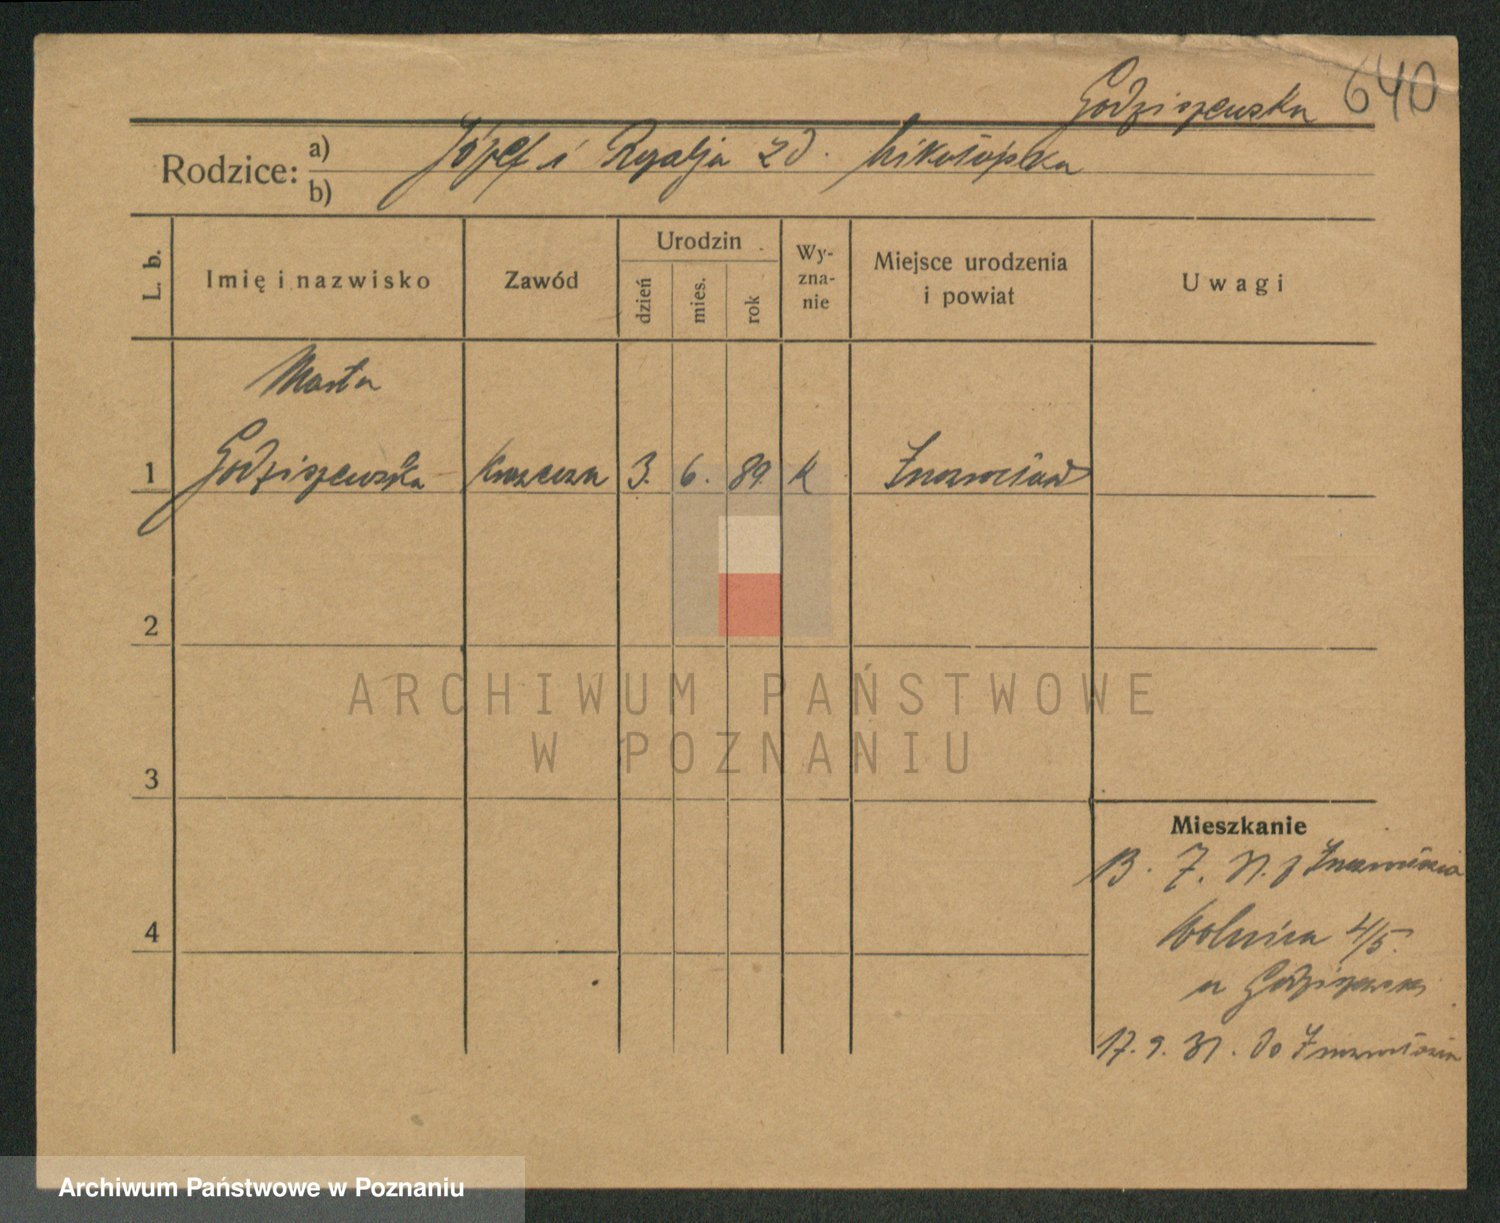 Godziszewska 640
Rodzice: a) Józef i Rozalja zd.
b)
L. b.
Imię i nazwisko
Zawód
Urodzin
dzień
mies.
rok
Wy-
zna-
nie
Miejsce urodzenia
i powiat
Uwagi
Marta
1 Godziszewska Krawcowa 3. 6. 89. k Inowrocław
2
3
4
ARCHIWUM PAŃSTWOWE
W POZNANIU
Mieszkanie
13. 7. 31. z Inowrocławia
Wolnica 4/5.
u Godziszewska
17. 9. 31. do Inowrocławia
Archiwum Państwowe w Poznaniu